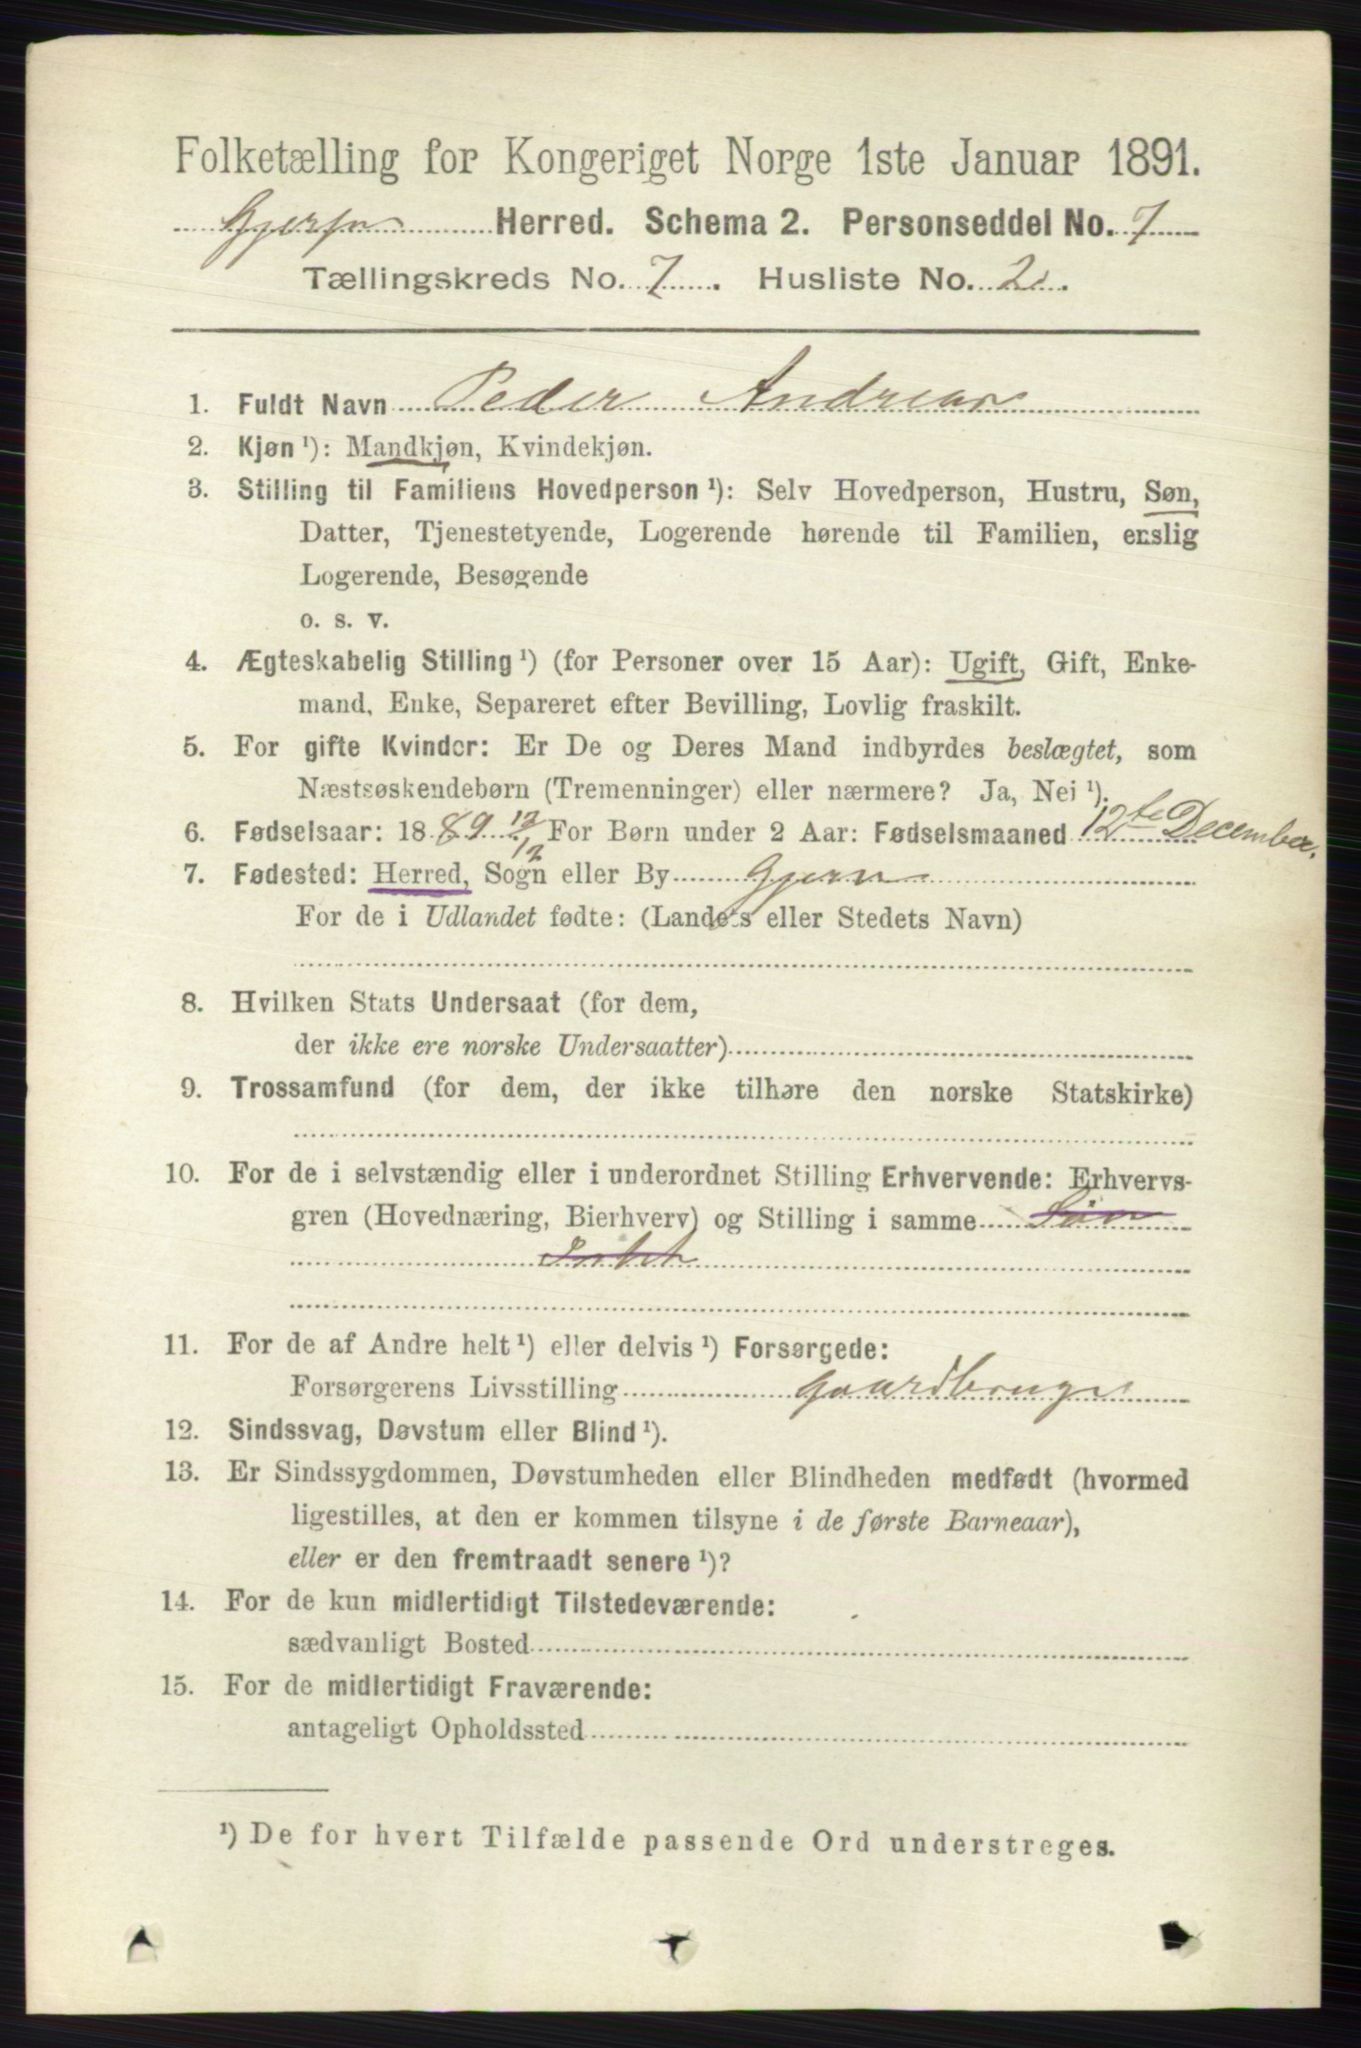 Folketælling for Kongeriget Norge 1ste Januar 1891.
Gjerpen Herred. Schema 2. Personseddel No. 7
Tællingskreds No. 7. Husliste No. 2.
1. Fuldt Navn Peder Andreas
2. Kjøn ¹): Mandkjøn, Kvindekjøn.
3. Stilling til Familiens Hovedperson ¹): Selv Hovedperson, Hustru, Søn,
Datter, Tjenestetyende, Logerende hørende til Familien, enslig
Logerende, Besøgende
o. s. v.
4. Ægteskabelig Stilling ¹) (for Personer over 15 Aar): Ugift, Gift, Enke-
mand, Enke, Separeret efter Bevilling, Lovlig fraskilt.
5. For gifte Kvinder: Er De og Deres Mand indbyrdes beslægtet, som
Næstsøskendebørn (Tremenninger) eller nærmere? Ja, Nei ¹).
6. Fødselsaar: 1889 12/12 For Børn under 2 Aar: Fødselsmaaned 12te December.
7. Fødested: Herred, Sogn eller By
For de i Udlandet fødte: (Landets eller Stedets Navn)
8. Hvilken Stats Undersaat (for dem,
der ikke ere norske Undersaatter)
9. Trossamfund (for dem, der ikke tilhøre den norske Statskirke)
10. For de i selvstændig eller i underordnet Stilling Erhvervende: Erhvervs-
gren (Hovednæring, Bierhverv) og Stilling i samme Søn
11. For de af Andre helt ¹) eller delvis ¹) Forsørgede:
Forsørgerens Livsstilling Gaardbruger
12. Sindssvag, Døvstum eller Blind ¹).
13. Er Sindssygdommen, Døvstumheden eller Blindheden medfødt (hvormed
ligestilles, at den er kommen tilsyne i de første Barneaar),
eller er den fremtraadt senere ¹)?
14. For de kun midlertidigt Tilstedeværende:
sædvanligt Bosted
15. For de midlertidigt Fraværende:
antageligt Opholdssted
¹) De for hvert Tilfælde passende Ord understreges.